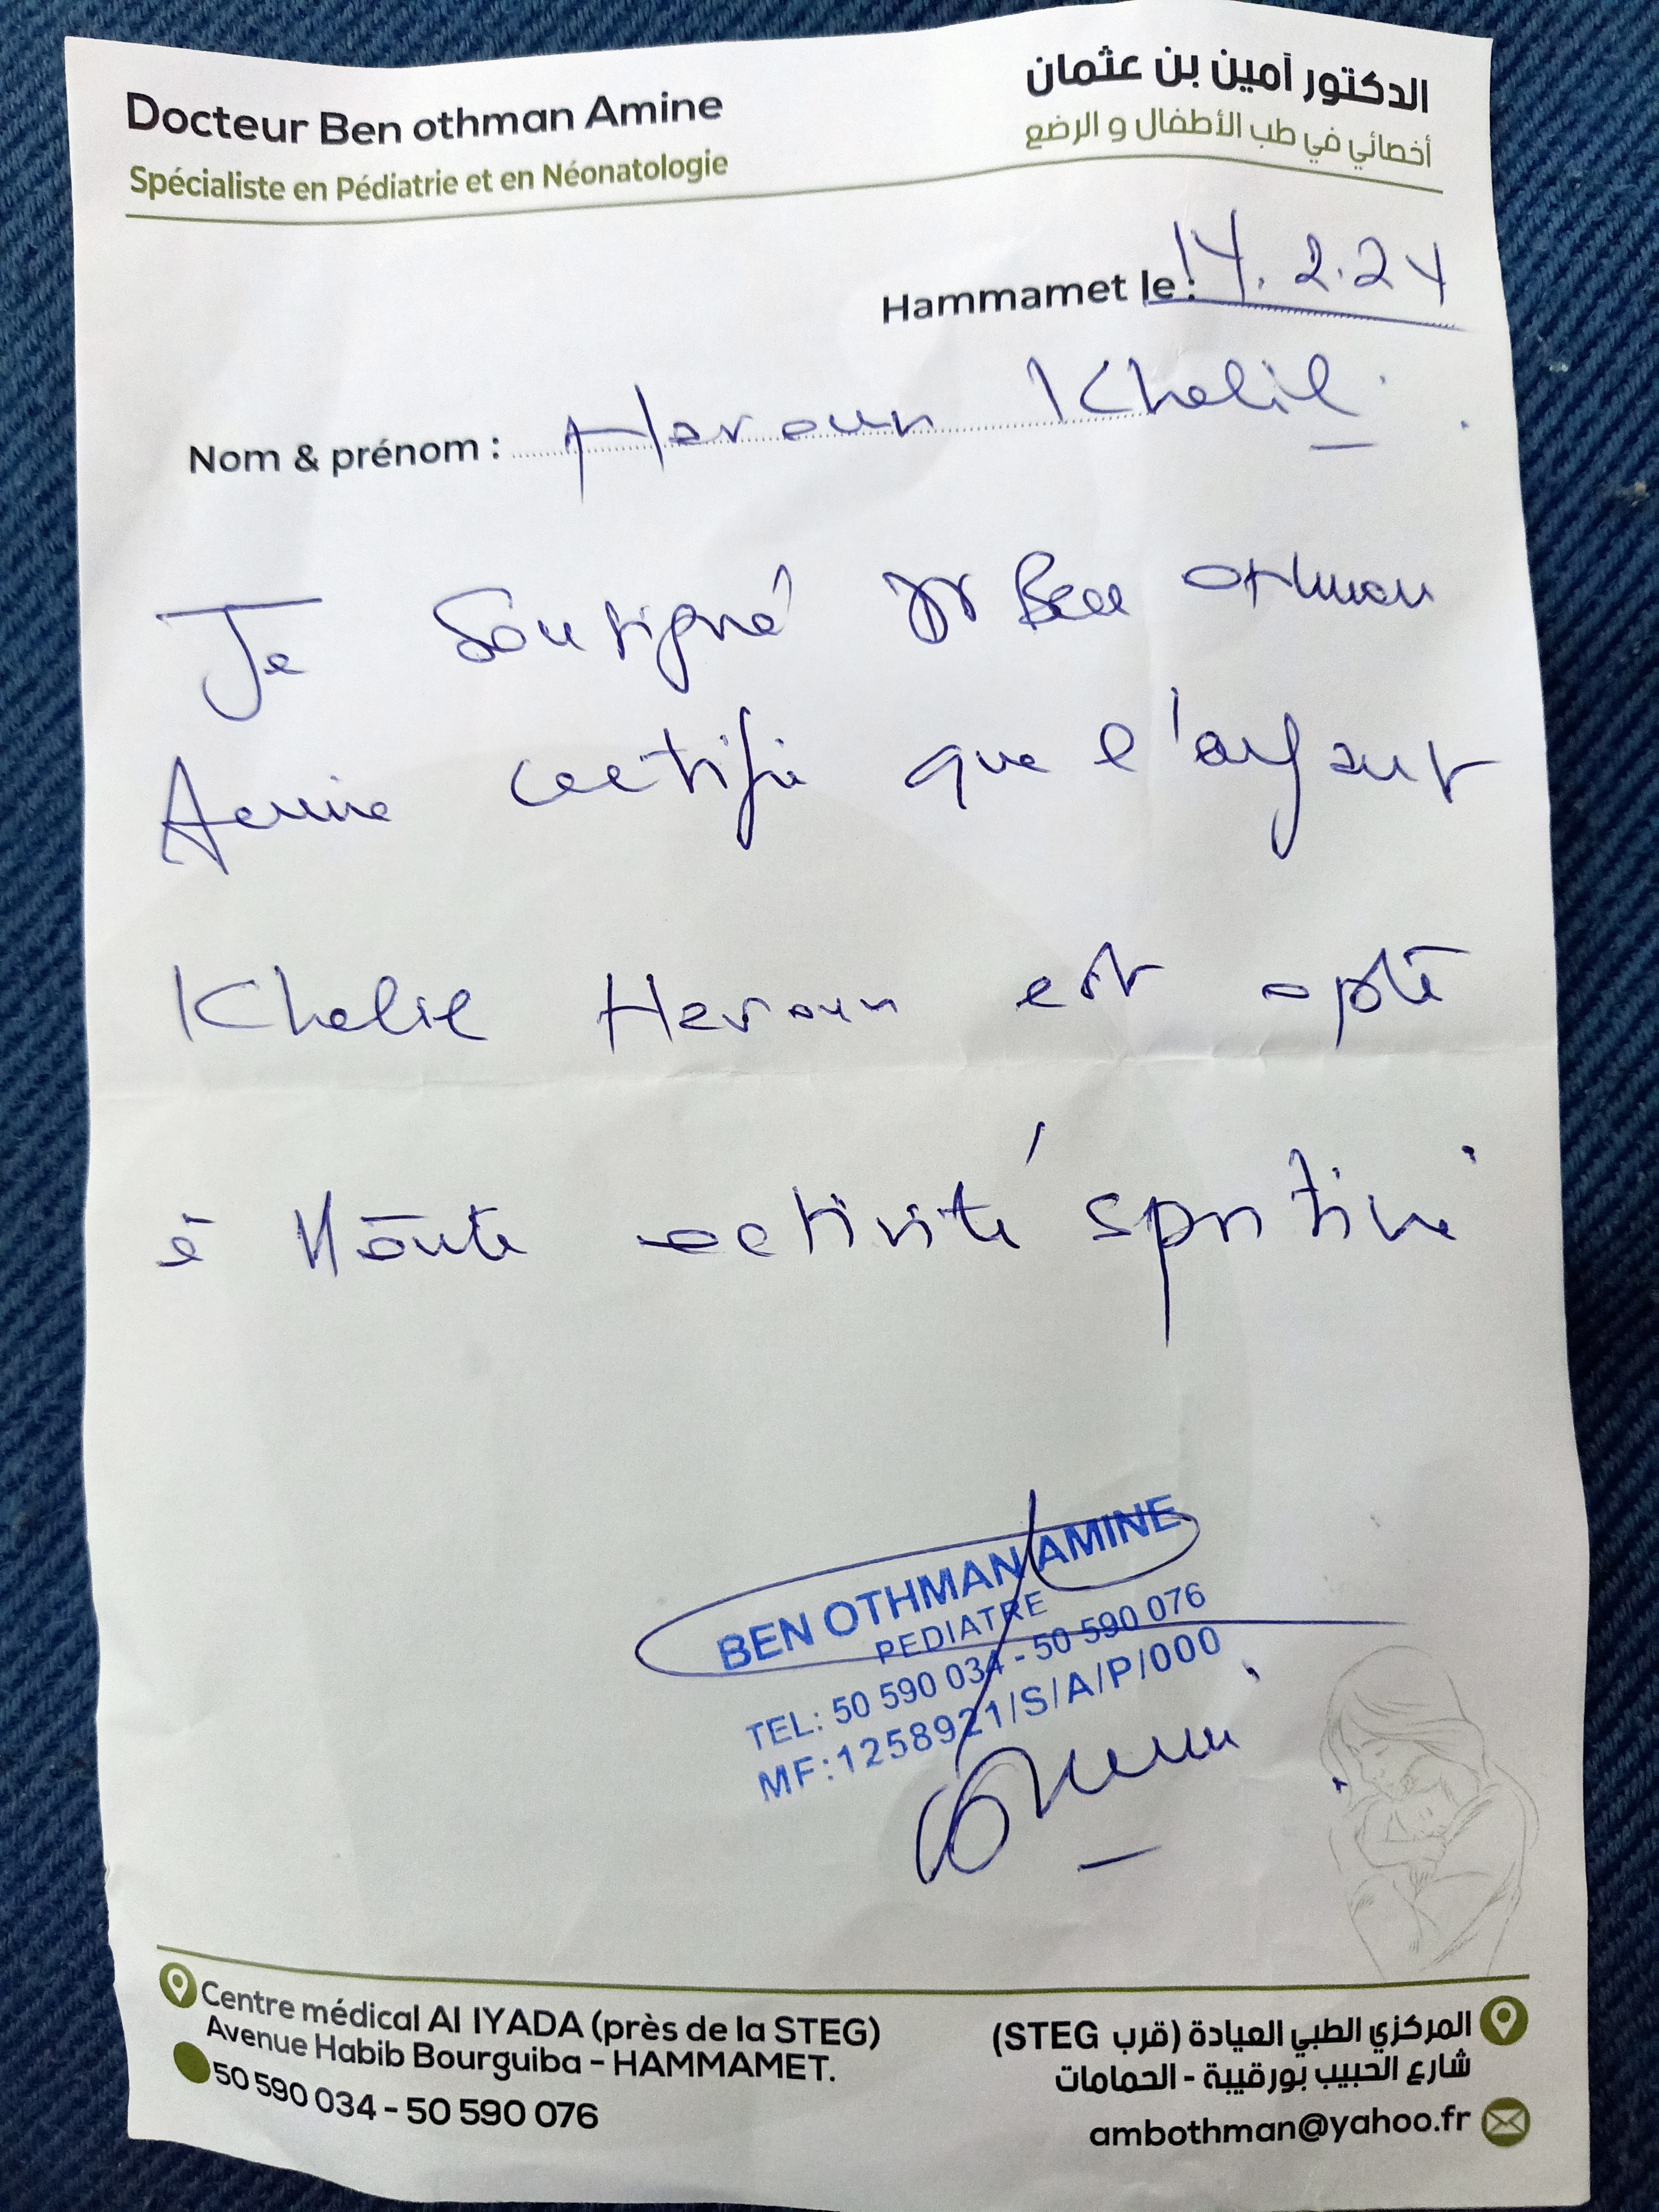 Docteur Ben othman Amine
Spécialiste en Pédiatrie et en Néonatologie
الدكتور آمين بن عثمان
أخصائي في طب الأطفال و الرضع
Hammamet le : 14.2.24
Nom & prénom : Haroun Khelil
Je Soussigné Dr Ben Othman
Amine certifie que l'enfant
Khelil Haroun est apte
à toute activité sportive
BEN OTHMAN AMINE
PEDIATRE
TEL: 50 590 034 - 50 590 076
MF:1258921/S/A/P/000
Centre médical Al IYADA (près de la STEG)
Avenue Habib Bourguiba - HAMMAMET.
50 590 034 - 50 590 076
المركزي الطبي العيادة (قرب STEG)
شارع الحبيب بورقيبة - الحمامات
ambothman@yahoo.fr